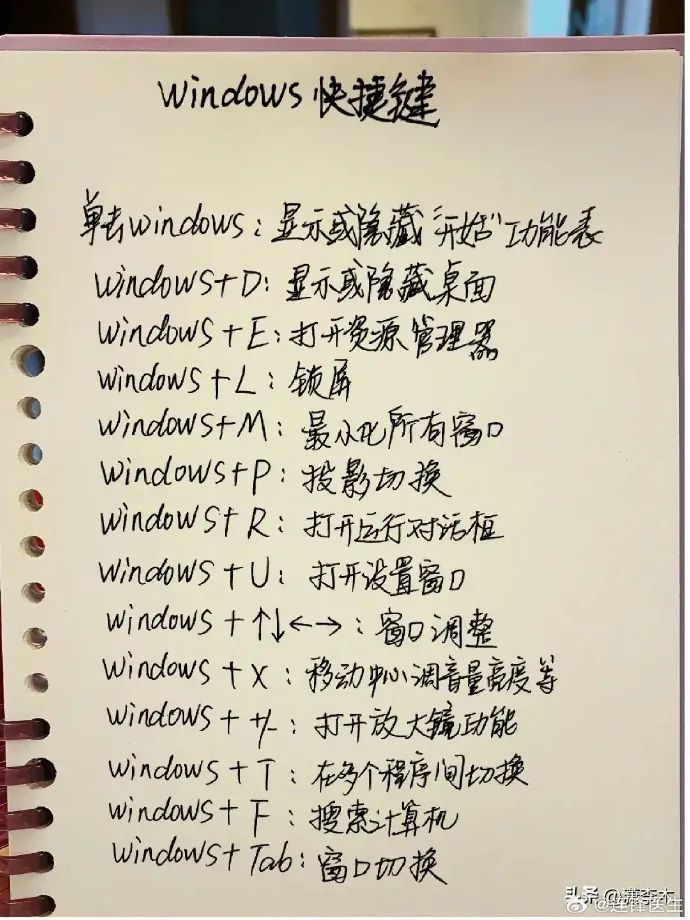 windows 快捷键
单击windows：显示或隐藏“开始”功能表
windows+D：显示或隐藏桌面
windows+E：打开资源管理器
windows+L：锁屏
windows+M：最小化所有窗口
windows+P：投影切换
windows+R：打开运行对话框
windows+U：打开设置窗口
windows+↑↓←→：窗口调整
windows+x：移动中心调音量亮度等
windows++/-：打开放大镜功能
windows+T：在多个程序间切换
windows+F：搜索计算机
windows+Tab：窗口切换
头条
医生